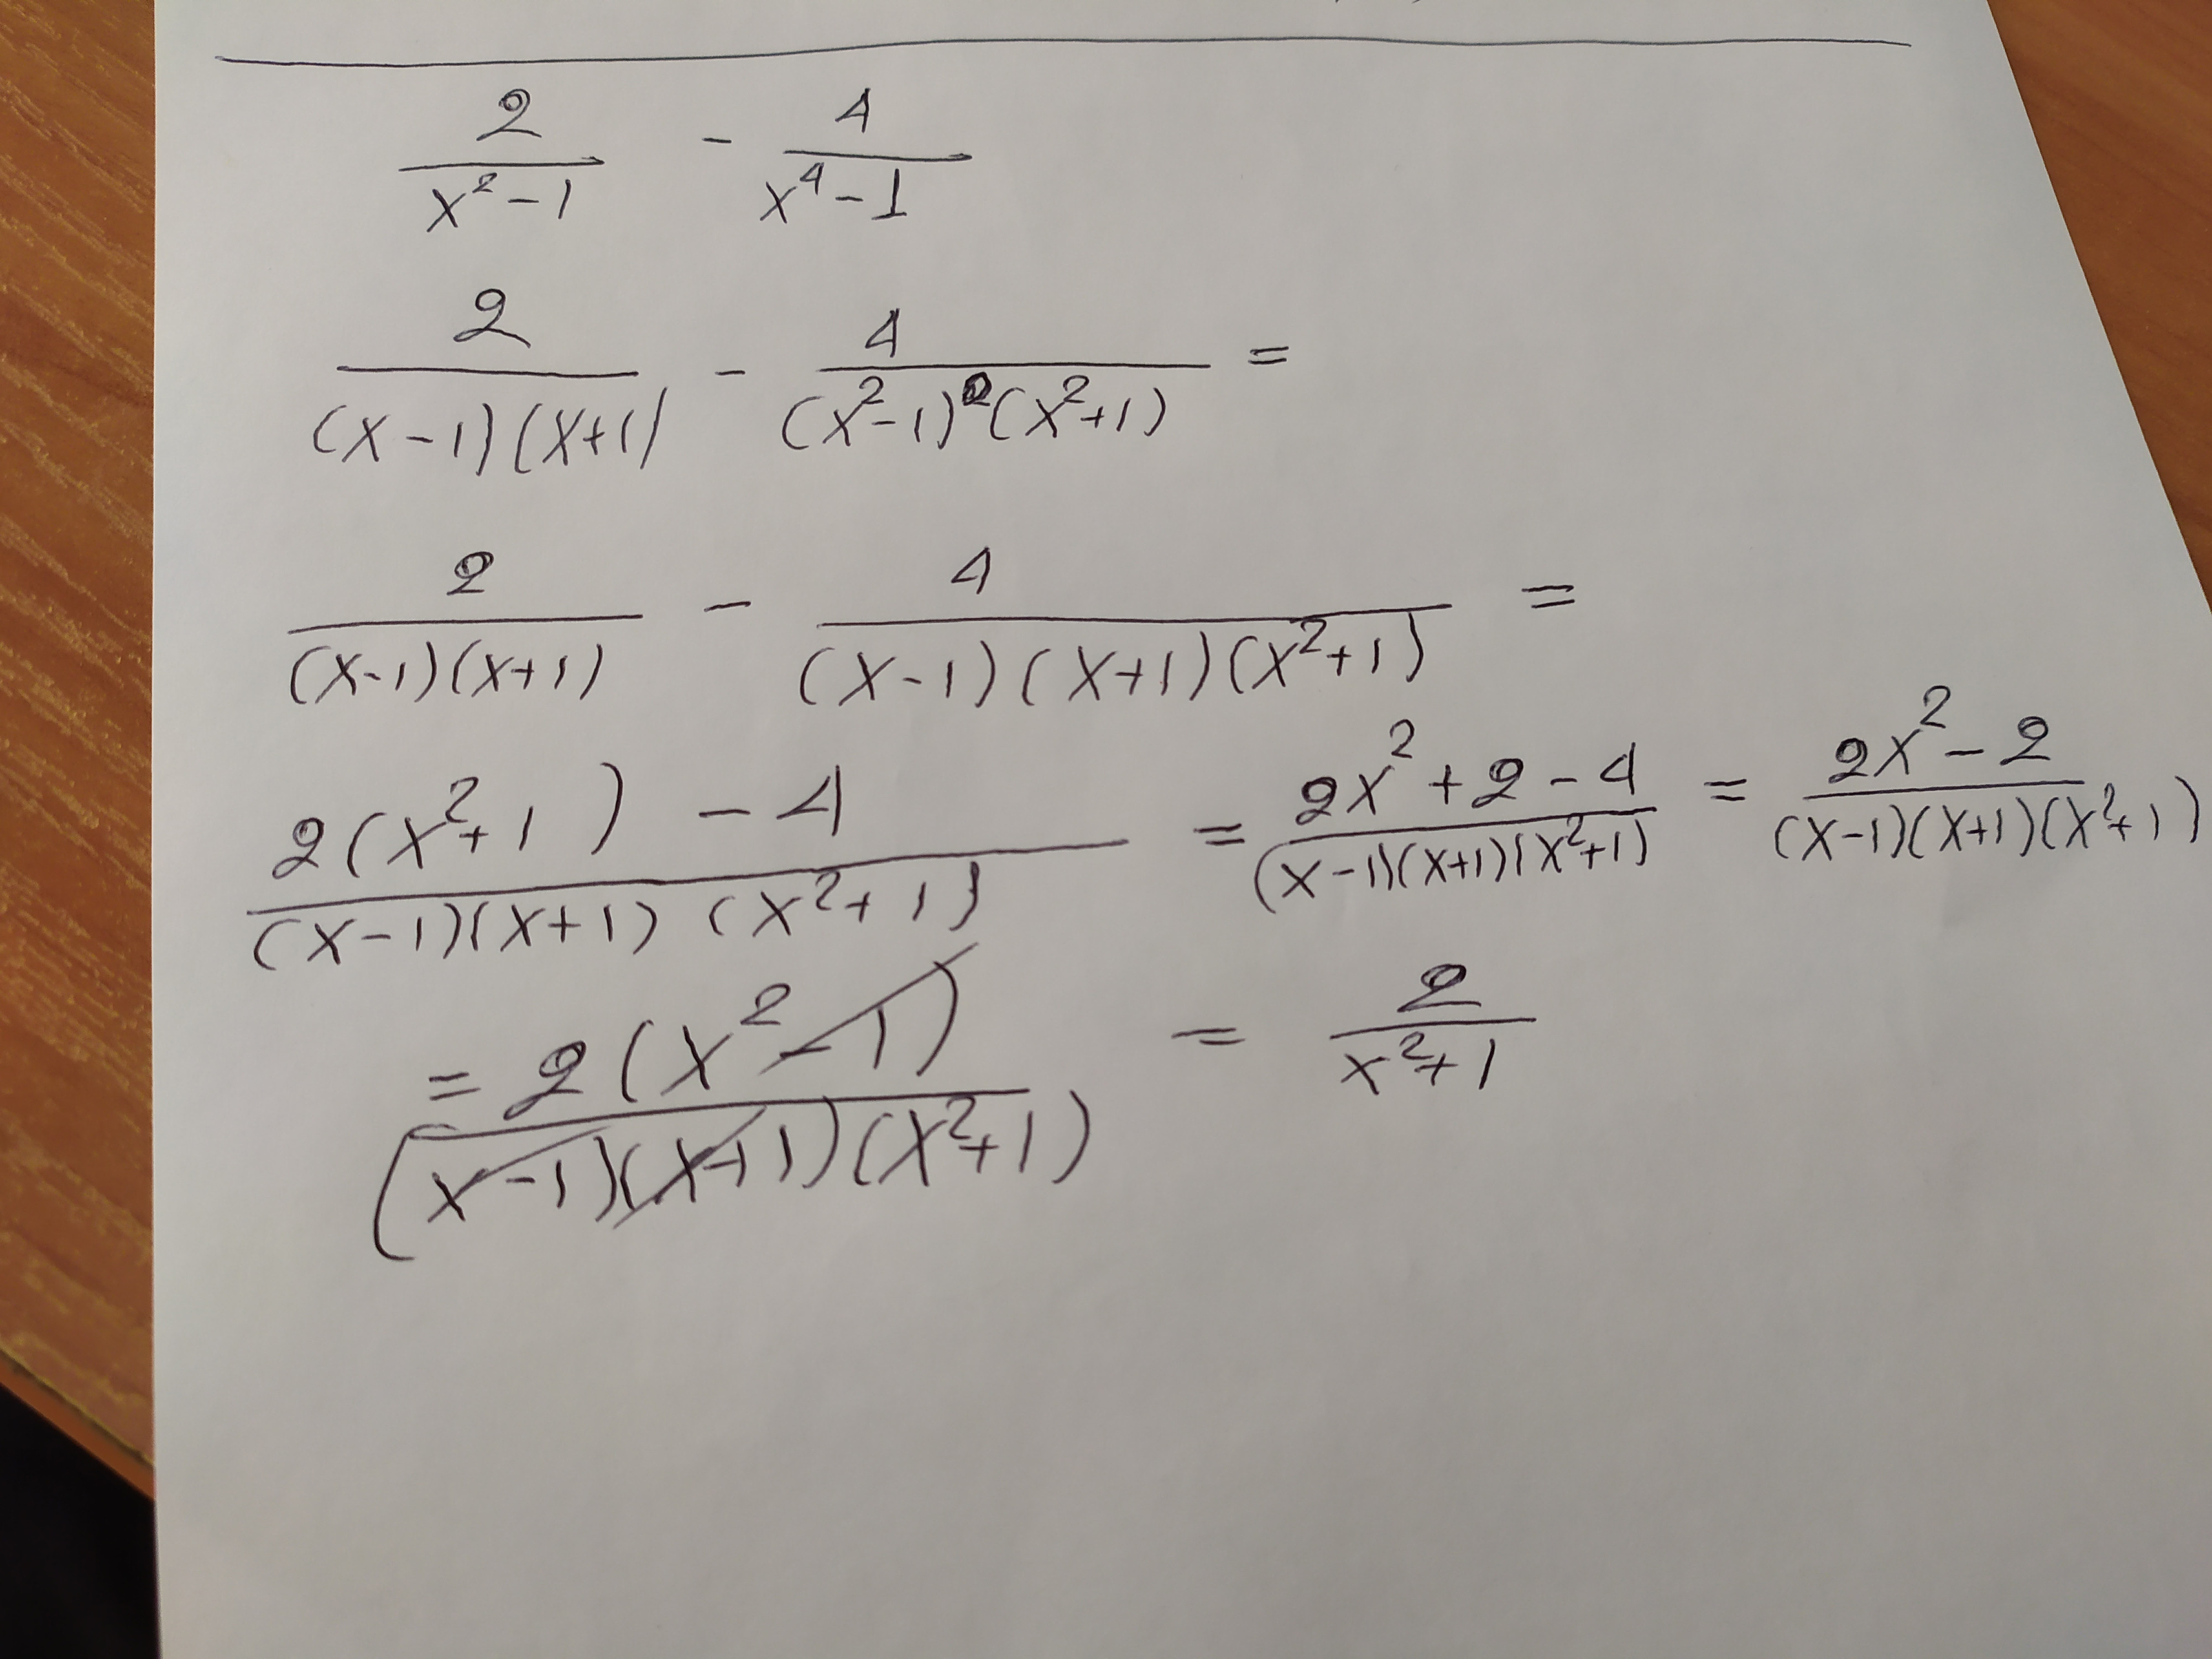 2/(x²-1) - 4/(x⁴-1)
2/((x-1)(x+1)) - 4/((x²-1)(x²+1)) =
2/((x-1)(x+1)) - 4/((x-1)(x+1)(x²+1)) =
(2(x²+1) - 4)/((x-1)(x+1)(x²+1)) = (2x²+2-4)/((x-1)(x+1)(x²+1)) = (2x²-2)/((x-1)(x+1)(x²+1))
= 2(x²-1)/((x-1)(x+1)(x²+1)) = 2/(x²+1)